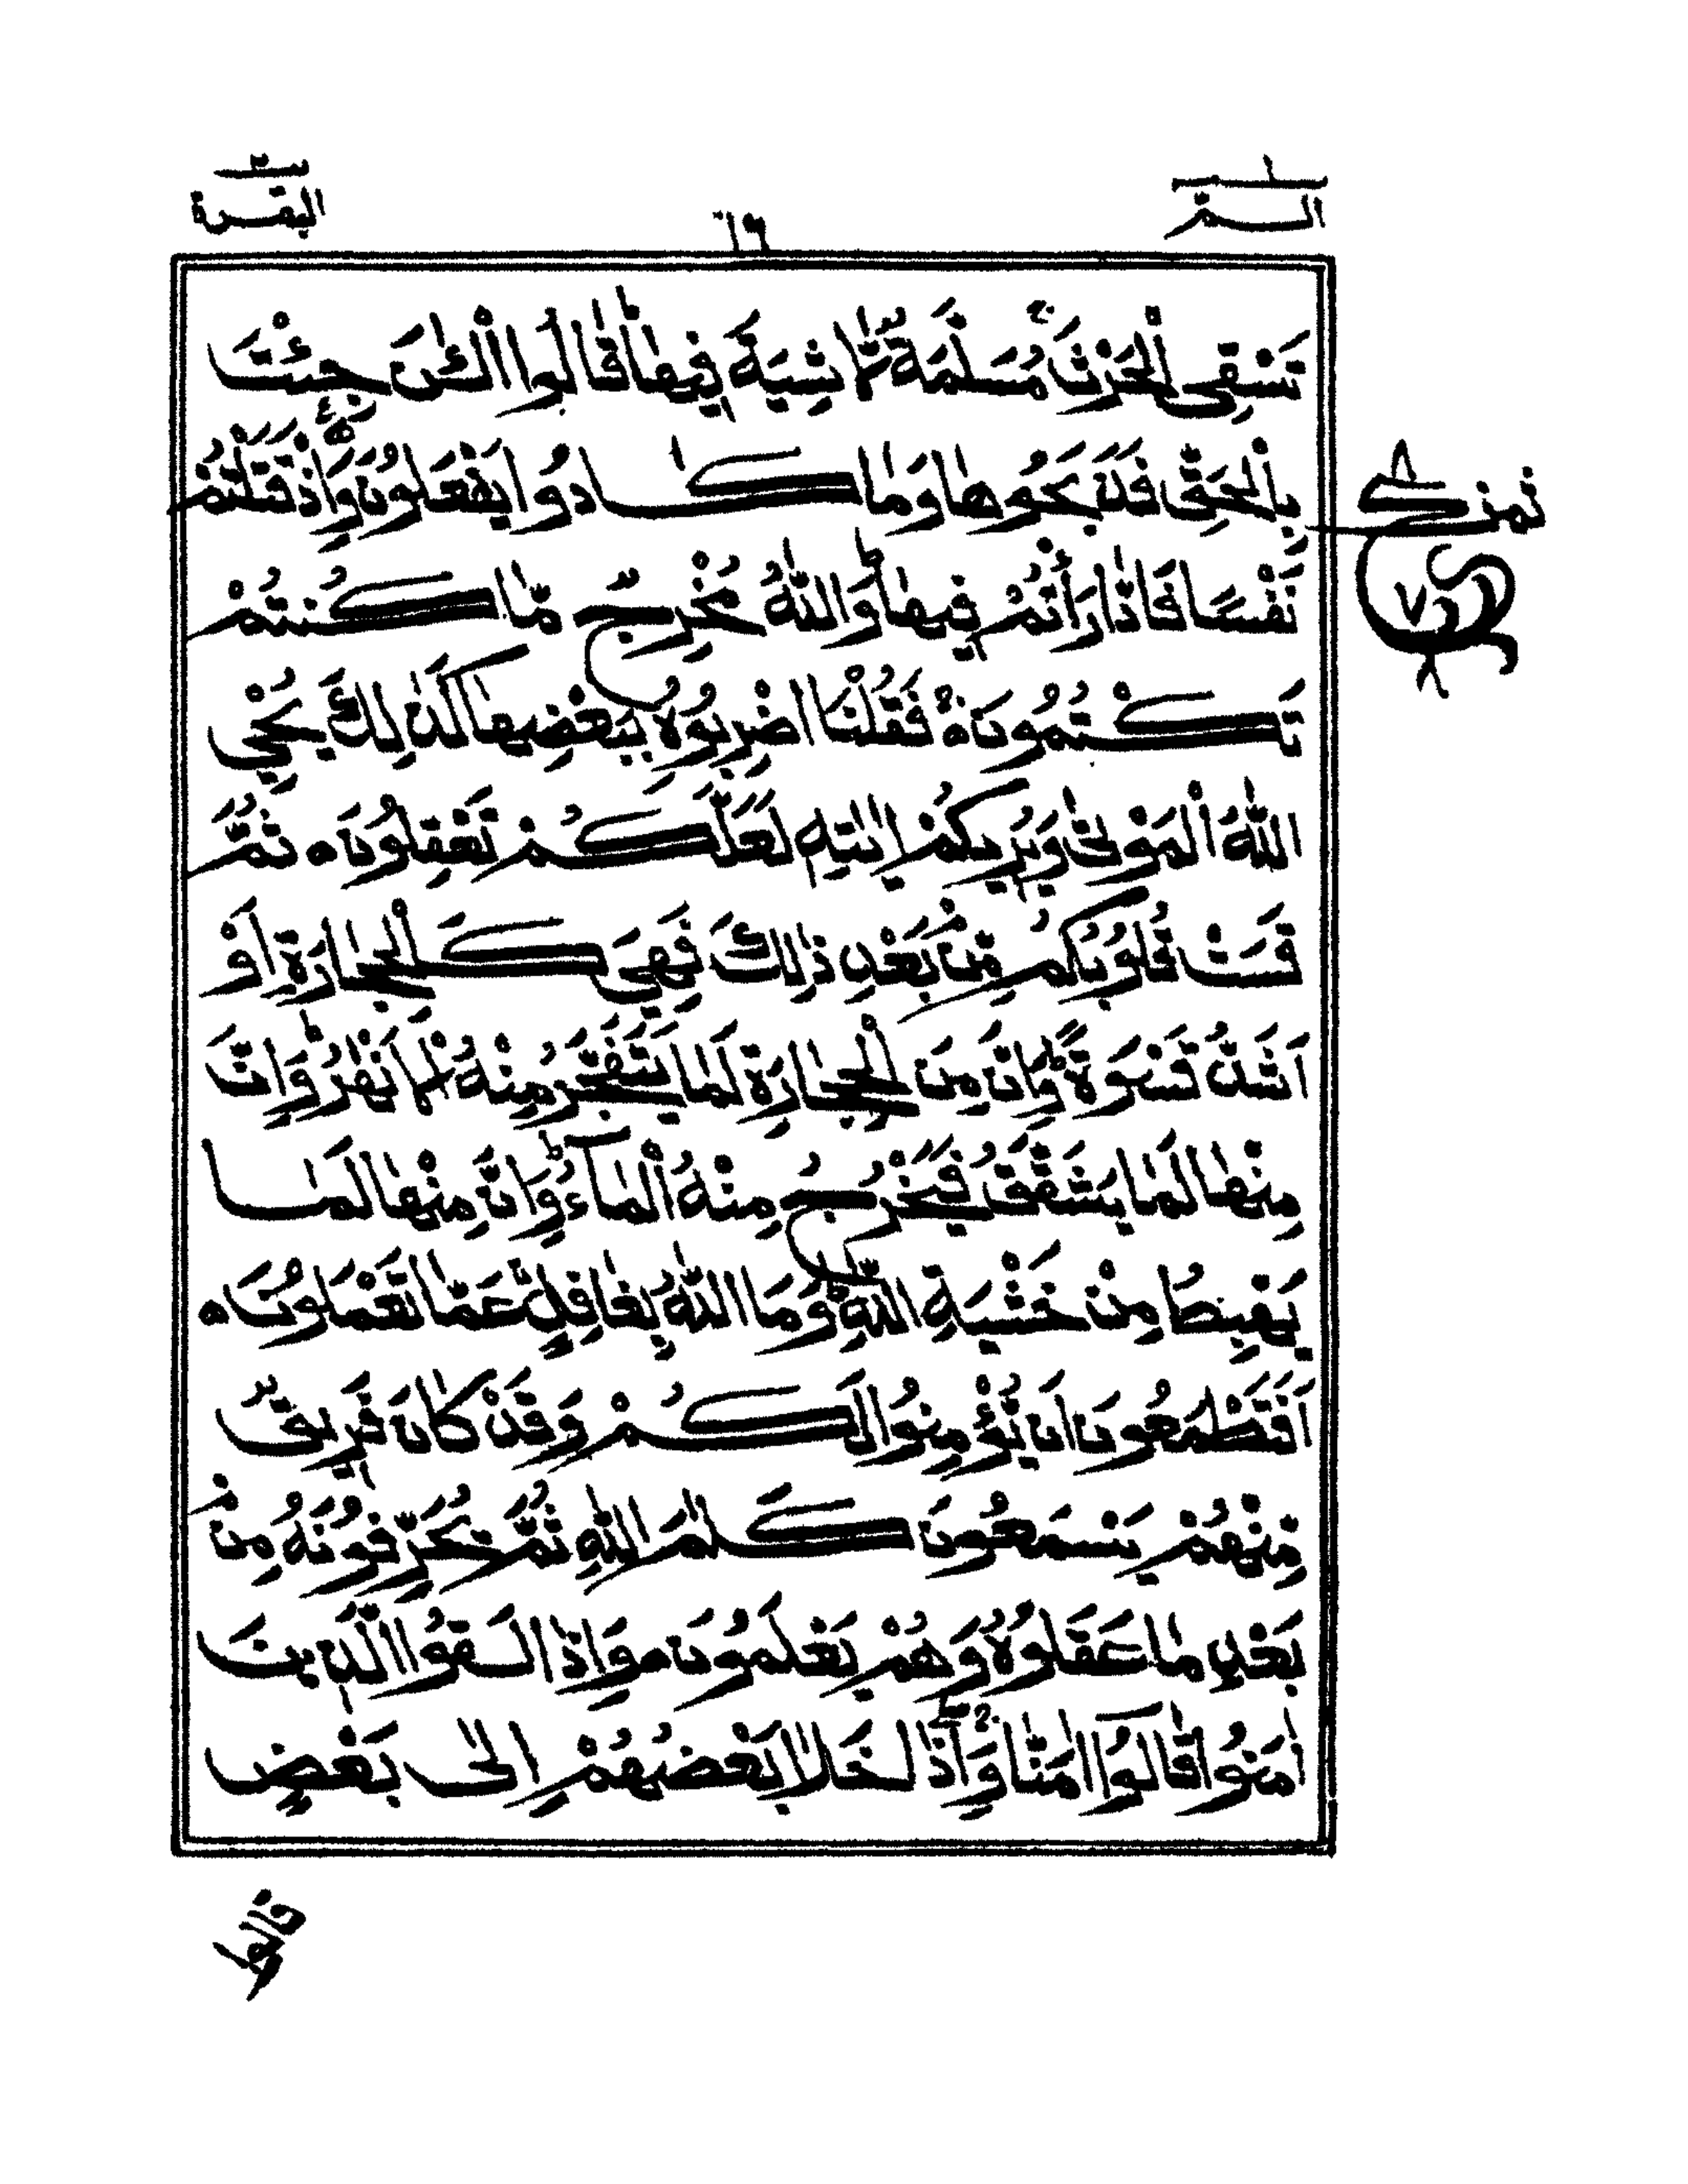 الٓمّٓ ١
١٦
البقرة ٢
تَسْقِى الْحَرْثَ مُسَلَّمَةٌ لَّا شِيَةَ فِيهَا ۚ قَالُوا الْـٰٔنَ جِئْتَ
بِالْحَقِّ ۚ فَذَبَحُوهَا وَمَا كَادُوا يَفْعَلُونَ ۞ وَإِذْ قَتَلْتُمْ
نَفْسًا فَادّٰرَأْتُمْ فِيهَا ۖ وَاللّٰهُ مُخْرِجٌ مَّا كُنتُمْ
تَكْتُمُونَ ۞ فَقُلْنَا اضْرِبُوهُ بِبَعْضِهَا ۚ كَذٰلِكَ يُحْيِ
اللّٰهُ الْمَوْتٰى وَيُرِيكُمْ اٰيٰتِهِ لَعَلَّكُمْ تَعْقِلُونَ ۞ ثُمَّ
قَسَتْ قُلُوبُكُم مِّنْ بَعْدِ ذٰلِكَ فَهِيَ كَالْحِجَارَةِ أَوْ
أَشَدُّ قَسْوَةً ۚ وَإِنَّ مِنَ الْحِجَارَةِ لَمَا يَتَفَجَّرُ مِنْهُ الْأَنْهٰرُ ۚ وَإِنَّ
مِنْهَا لَمَا يَشَّقَّقُ فَيَخْرُجُ مِنْهُ الْمَآءُ ۚ وَإِنَّ مِنْهَا لَمَا
يَهْبِطُ مِنْ خَشْيَةِ اللّٰهِ ۗ وَمَا اللّٰهُ بِغَافِلٍ عَمَّا تَعْمَلُونَ ۞
أَفَتَطْمَعُونَ أَن يُؤْمِنُوا لَكُمْ وَقَدْ كَانَ فَرِيقٌ
مِّنْهُمْ يَسْمَعُونَ كَلٰمَ اللّٰهِ ثُمَّ يُحَرِّفُونَهُ مِنْ
بَعْدِ مَا عَقَلُوهُ وَهُمْ يَعْلَمُونَ ۞ وَإِذَا لَقُوا الَّذِينَ
اٰمَنُوا قَالُوا اٰمَنَّا ۚ وَإِذَا خَلَا بَعْضُهُمْ إِلٰى بَعْضٍ
قالوا